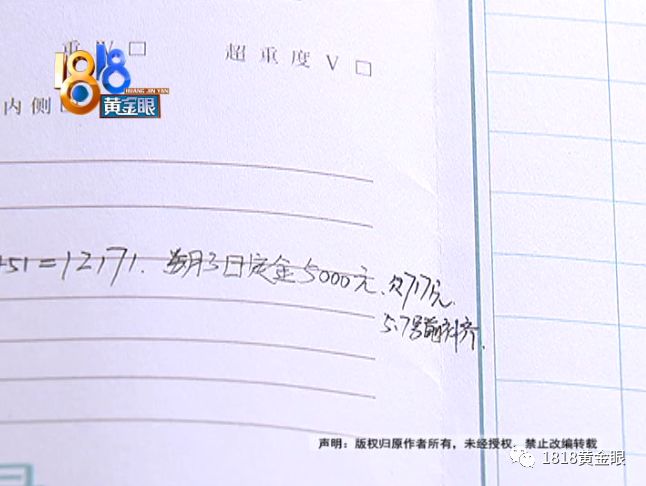 重 Ⅳ □ 超重度 V □
1818
HUANG JIN YAN
黄金眼
内侧
+51=12171. 5月3日定金5000元, 欠7171元.
5.7号前补齐.
声明：版权归原作者所有，未经授权，禁止改编转载
1818黄金眼